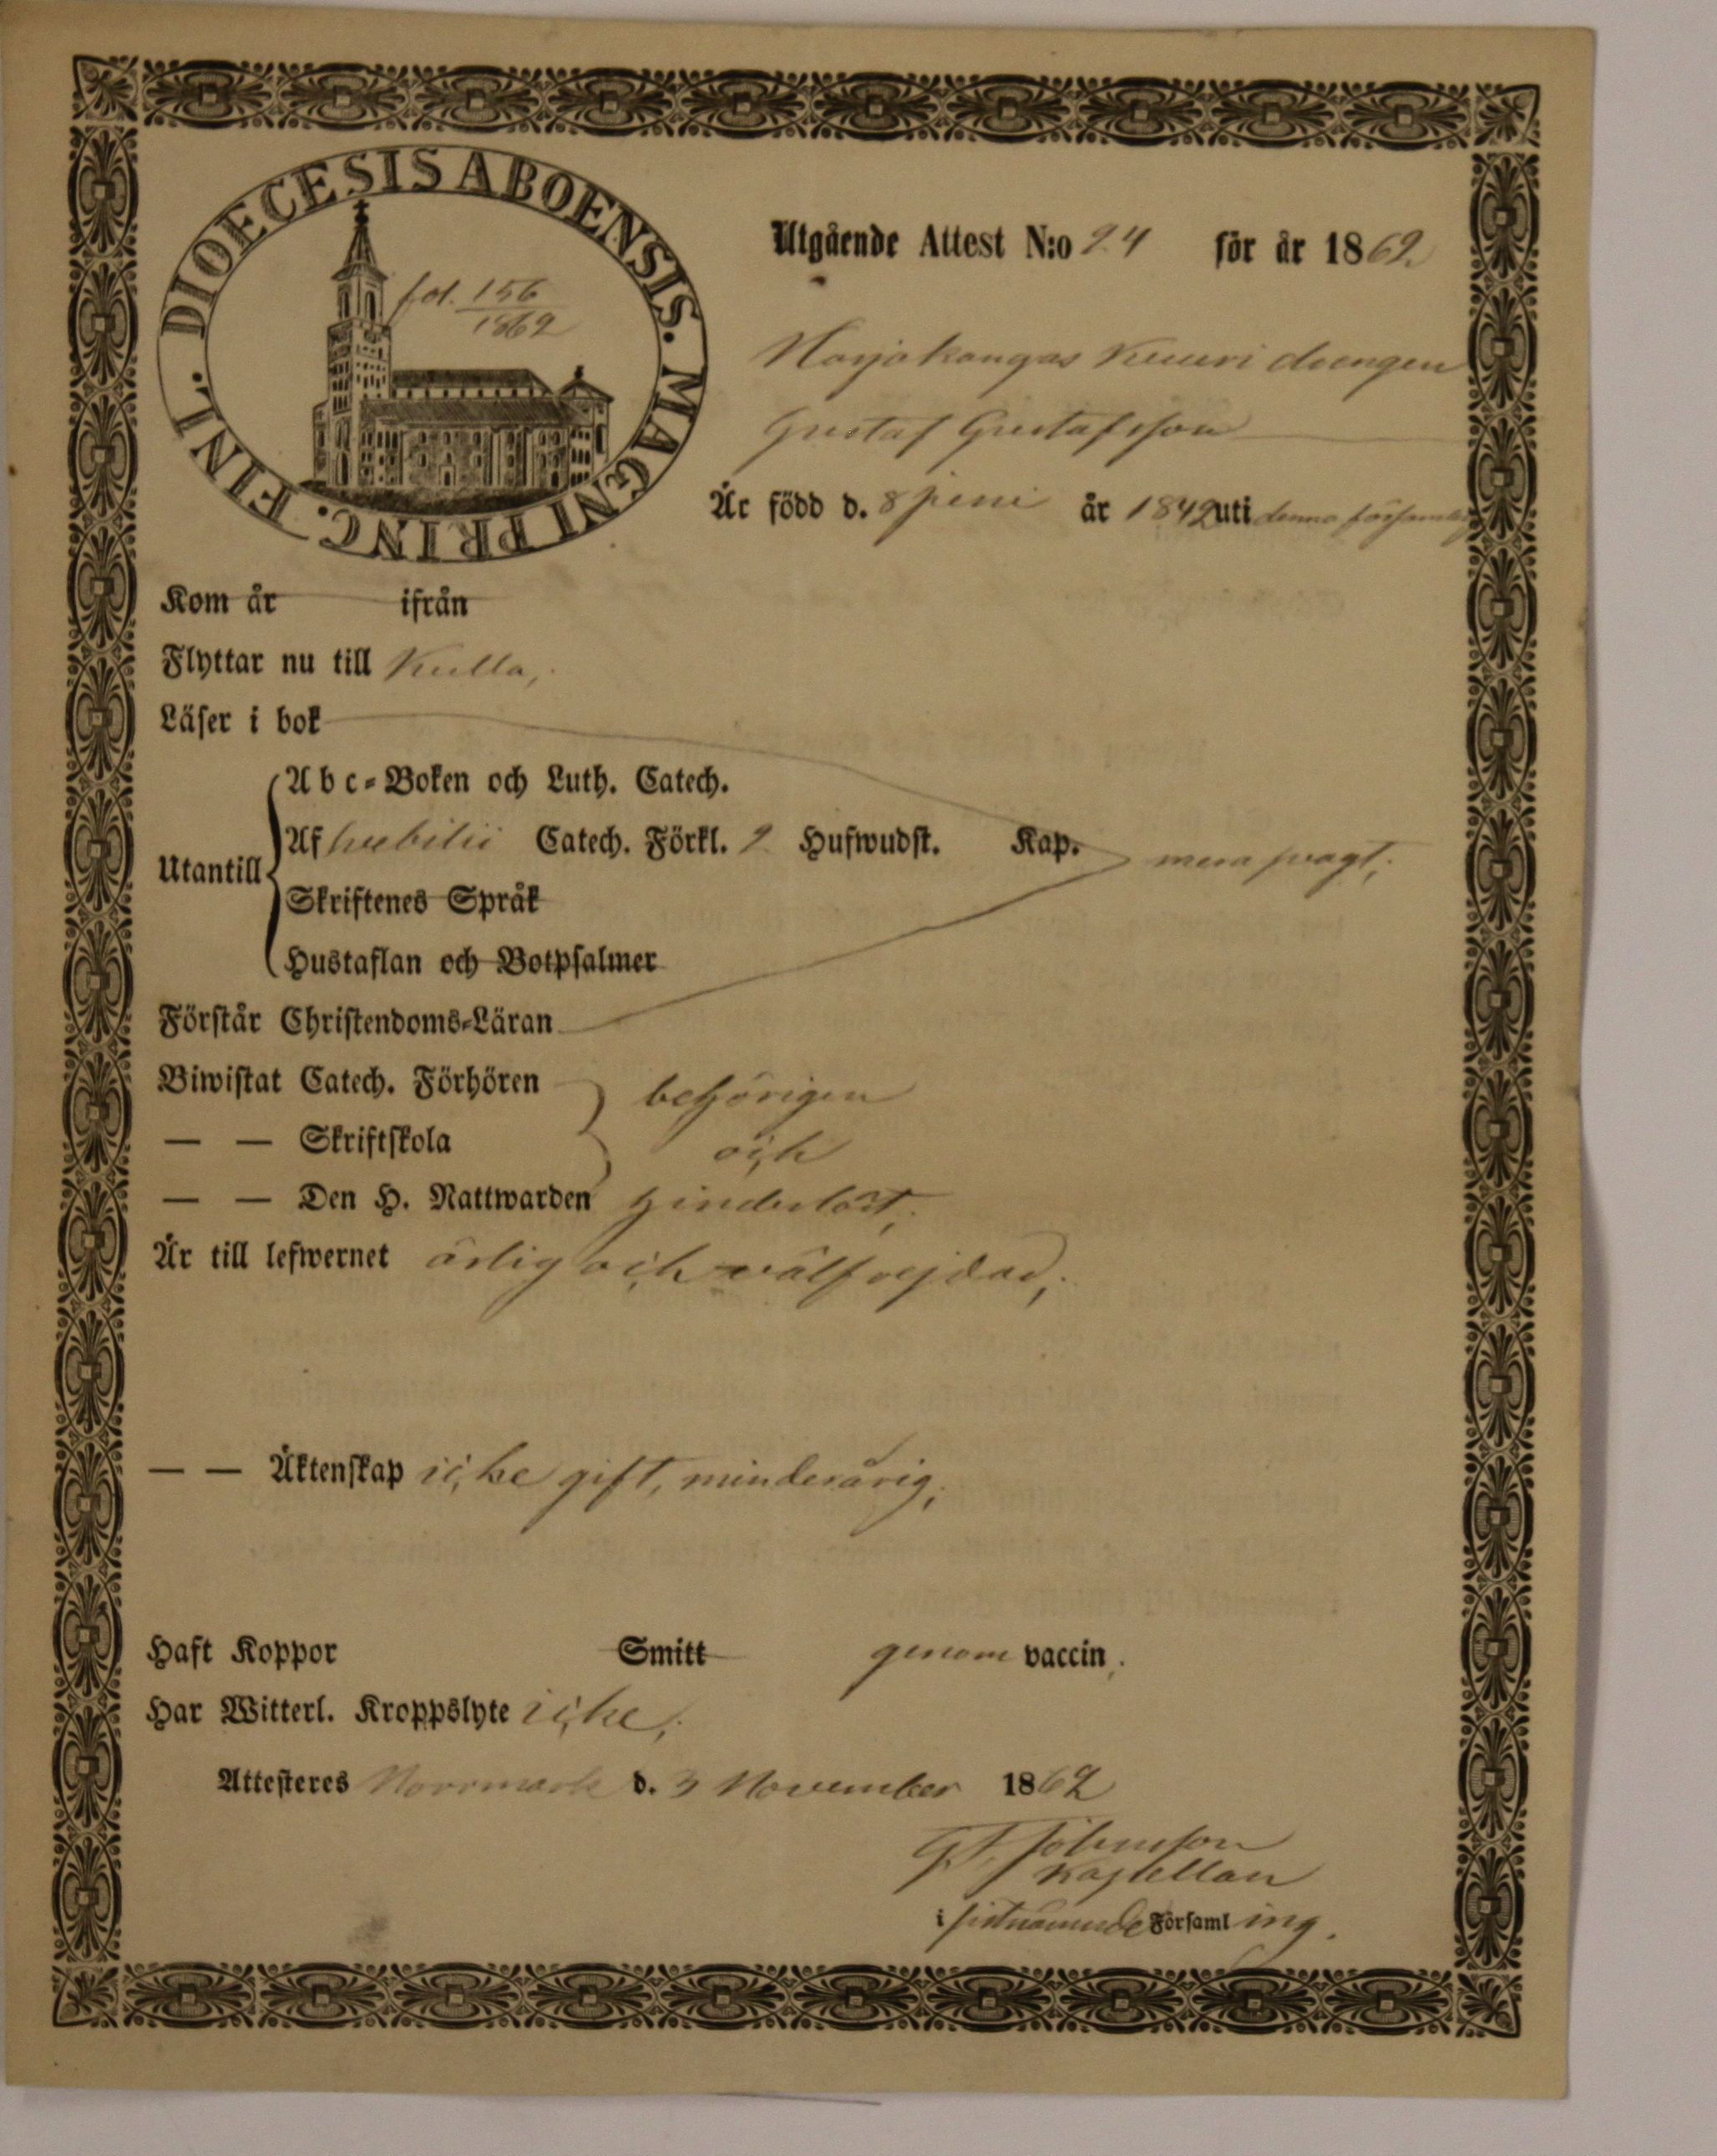 DIOECESIS ABOENSIS. MAGNI PRINC. FINL.
fol. 156
1862
Utgående Attest N:o 24 för år 1862
Harjakangas Kuuri drengen
Gustaf Gustafsson
Är född d. 8 juni år 1842 uti denna församling
Kom år ifrån
Flyttar nu till Kulla,
Läser i bok
Abc-Boken och Luth. Catech.
Utantill
Af Catech. Förkl. 2 Hufwudst. Kap. mera svagt,
Skriftenes Språk
Hustaflan och Botpsalmer
Förstår Christendoms-Läran
Biwistat Catech. Förhören behörigen
— — Skriftskola och
— — Den H. Nattwarden hinderlöst,
Är till lefwernet ärlig och välfrejdad,
— — Äktenskap icke gift, minderårig,
Haft Koppor Smitt genom vaccin,
Har Witterl. Kroppslyte icke,
Attesteres Norrmark d. 3 November 1862
Kapellan
i sistnämnde Församling.